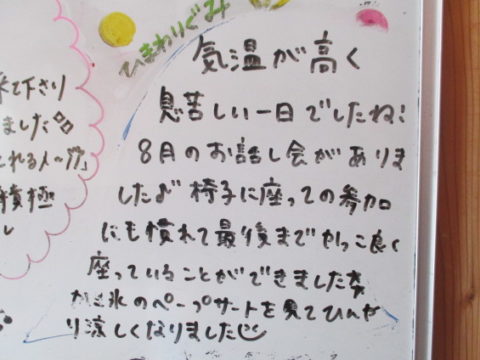 来て下さり
ました
とれる人〜??"
積極
し
ひまわりぐみ
気温が高く
息苦しい一日でしたね!
8月のお話し会がありま
した♪椅子に座っての参加
にも慣れて最後までかっこ良く
座っていることができました☆
かき氷のペープサートを見てひんや
り涼しくなりました☺